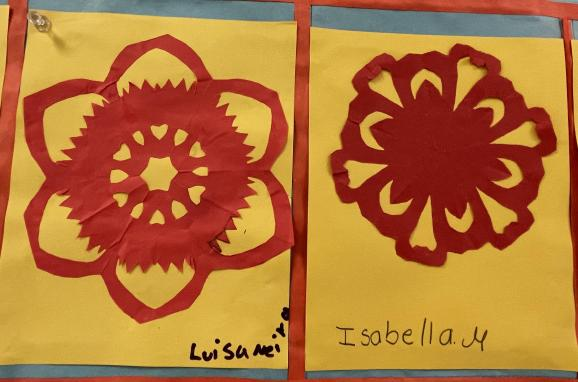 Luisa Nei
Isabella.M